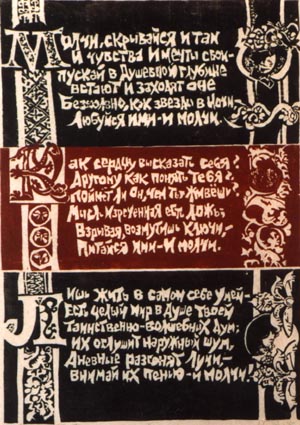 Молчи, скрывайся и таи
И чувства и мечты свои –
пускай в душевной глубине
встают и заходят оне
Безмолвно, как звезды в ночи,
Любуйся ими – и молчи.
Как сердцу высказать себя?
Другому как понять тебя?
Поймет ли он, чем ты живешь?
Мысль изреченная есть ложь.
Взрывая, возмутишь ключи, –
Питайся ими – и молчи.
Лишь жить в самом себе умей –
Есть целый мир в душе твоей
Таинственно-волшебных дум;
их оглушит наружный шум,
Дневные разгонят лучи, –
внимай их пенью – и молчи!